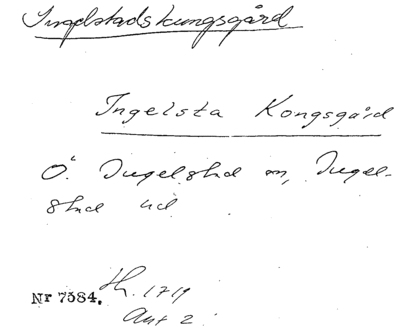 Ingelstadskungsgård
Ingelsta Kongsgård
Ö. Ingelstad sn, Ingel-
stad hd
Nr 7384. Th. 1719
Ant 2